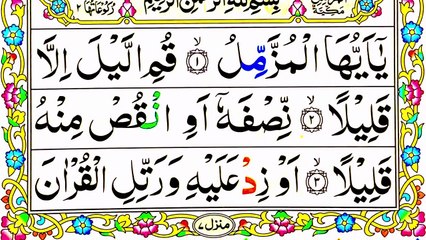 بِسْمِ اللهِ الرَّحْمٰنِ الرَّحِيْمِ
يٰۤاَيُّهَا الْمُزَّمِّلُ ۙ‏﴿۱﴾ قُمِ الَّيْلَ اِلَّا
قَلِيْلًا ۙ‏﴿۲﴾ نِّصْفَهٗۤ اَوِ انْقُصْ مِنْهُ
قَلِيْلًا ۙ‏﴿۳﴾ اَوْ زِدْ عَلَيْهِ وَرَتِّلِ الْقُرْاٰنَ
منزل ۷